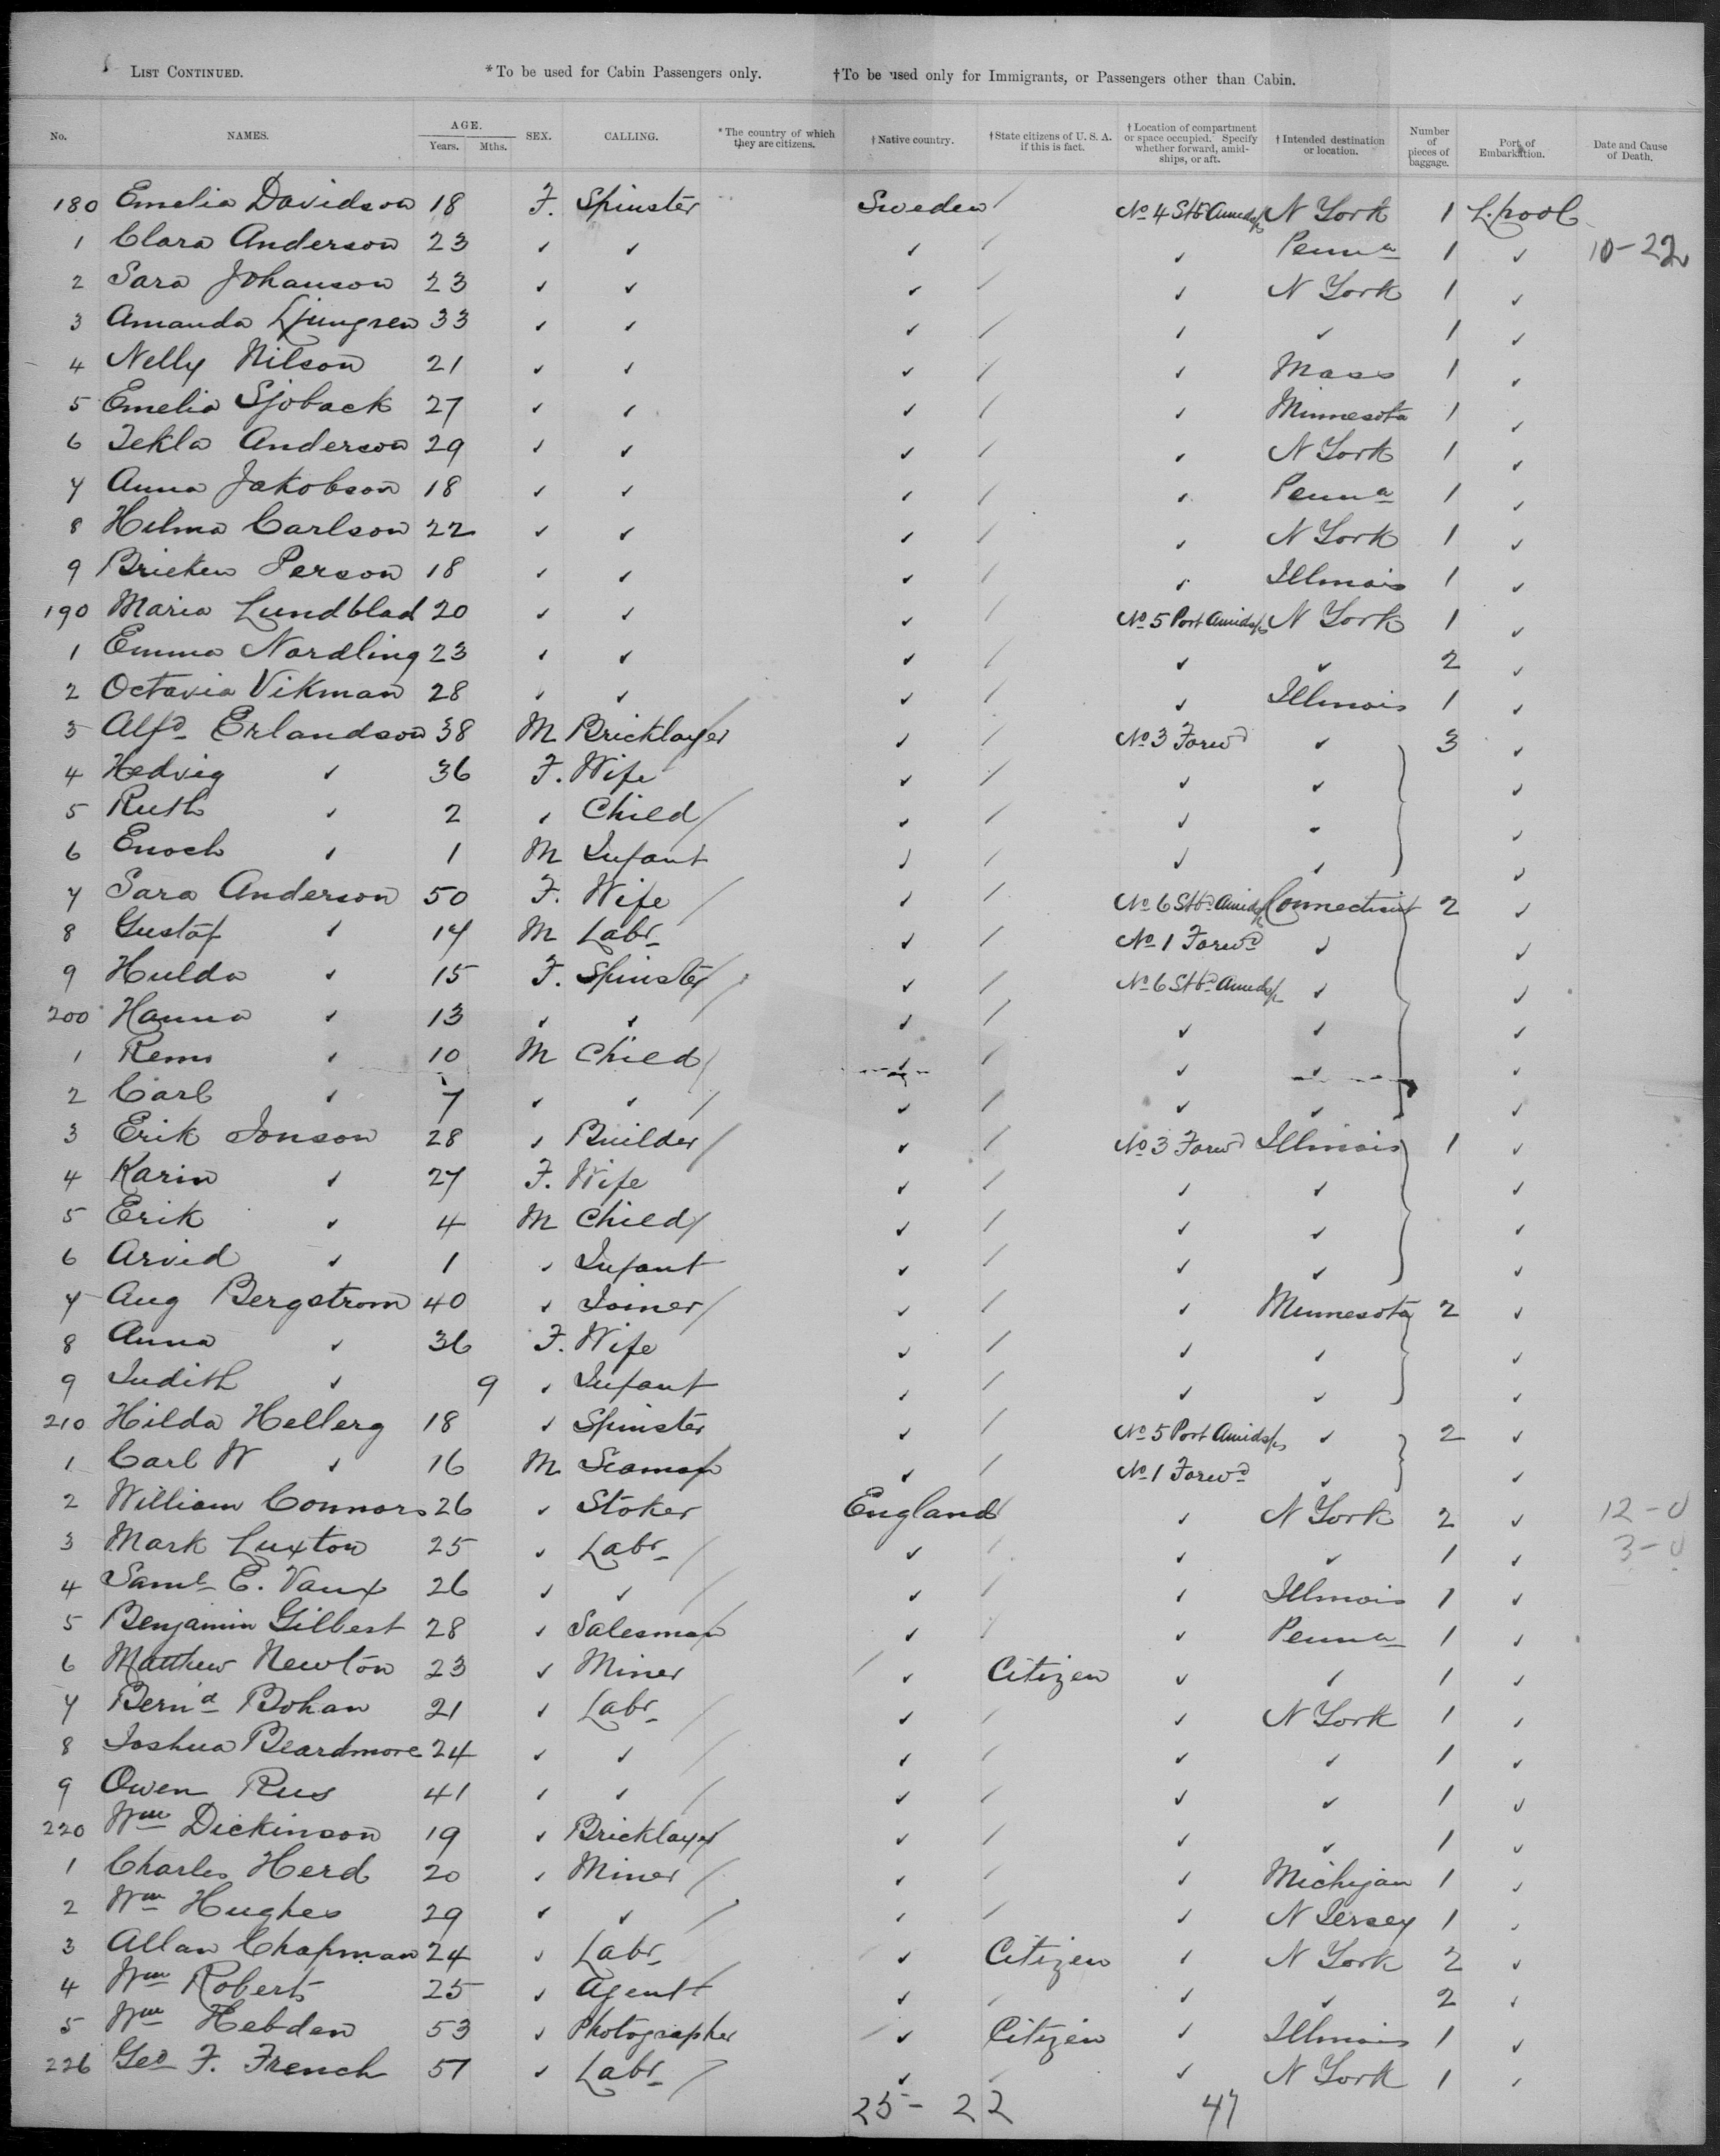 List Continued. *To be used for Cabin Passengers only. †To be used only for Immigrants, or Passengers other than Cabin.
No. NAMES. AGE. Years. Mths. SEX. CALLING. *The country of which they are citizens. †Native country. †State citizens of U. S. A. if this is fact. †Location of compartment or space occupied. Specify whether forward, amidships, or aft. †Intended destination or location. Number of pieces of baggage. Port of Embarkation. Date and Cause of Death.
180 Emelia Davidson 18 F. Spinster Sweden / No 4 Stb Amidsps N York 1 L.pool
1 Clara Anderson 23 ✓ ✓ ✓ / ✓ Penna 1 ✓ 10-22
2 Sara Johanson 23 ✓ ✓ ✓ / ✓ N York 1 ✓
3 Amanda Ljungren 33 ✓ ✓ ✓ / ✓ ✓ 1 ✓
4 Nelly Nilson 21 ✓ ✓ ✓ / ✓ Mass 1 ✓
5 Emelia Sjoback 27 ✓ ✓ ✓ / ✓ Minnesota 1 ✓
6 Tekla Anderson 29 ✓ ✓ ✓ / ✓ N York 1 ✓
7 Anna Jakobson 18 ✓ ✓ ✓ / ✓ Penna 1 ✓
8 Hilma Carlson 22 ✓ ✓ ✓ / ✓ N York 1 ✓
9 Bricken Person 18 ✓ ✓ ✓ / ✓ Illinois 1 ✓
190 Maria Lundblad 20 ✓ ✓ ✓ / No 5 Port Amidsps N York 1 ✓
1 Emma Nordling 23 ✓ ✓ ✓ / ✓ ✓ 2 ✓
2 Octavia Vikman 28 ✓ ✓ ✓ / ✓ Illinois 1 ✓
3 Alfd Erlandson 38 M Bricklayer / ✓ / No 3 Forwd ✓ 3 ✓
4 Hedvig ✓ 36 F. Wife ✓ / ✓ ✓ ✓
5 Ruth ✓ 2 ✓ Child / ✓ / ✓ ✓ ✓
6 Enoch ✓ 1 M Infant ✓ / ✓ ✓ ✓
7 Sara Anderson 50 F. Wife / ✓ / No 6 Stbd Amidsps Connecticut 2 ✓
8 Gustaf ✓ 17 M Labr ✓ / No 1 Forwd ✓ ✓
9 Hulda ✓ 15 F. Spinster / ✓ / No 6 Stbd Amidsps ✓ ✓
200 Hanna ✓ 13 ✓ ✓ / ✓ / ✓ ✓ ✓
1 ✓ 10 M Child / ✓ / ✓ ✓ ✓
2 Carl ✓ 7 ✓ ✓ / ✓ / ✓ ✓ ✓
3 Erik Jonson 28 ✓ Builder / ✓ / No 3 Forwd Illinois 1 ✓
4 Karin ✓ 27 F. Wife ✓ / ✓ ✓ ✓
5 Erik ✓ 4 M Child / ✓ / ✓ ✓ ✓
6 Arvid ✓ 1 ✓ Infant ✓ / ✓ ✓ ✓
7 Aug Bergstrom 40 ✓ Joiner / ✓ / ✓ Minnesota 2 ✓
8 Anna ✓ 36 F. Wife ✓ / ✓ ✓ ✓
9 Judith ✓ 9 ✓ Infant ✓ / ✓ ✓ ✓
210 Hilda Hellerg 18 ✓ Spinster ✓ / No 5 Port Amidsps ✓ 2 ✓
1 Carl W ✓ 16 M Seaman ✓ / No 1 Forwd ✓ ✓
2 William Connors 26 ✓ Stoker England / ✓ N York 2 ✓ 12-0
3 Mark Luxton 25 ✓ Labr / ✓ / ✓ ✓ 1 ✓ 3-0
4 Saml E. Vaux 26 ✓ ✓ / ✓ / ✓ Illinois 1 ✓
5 Benjamin Gilbert 28 ✓ Salesman ✓ / ✓ Penna 1 ✓
6 Matthew Newton 23 ✓ Miner / ✓ Citizen ✓ ✓ 1 ✓
7 Bernd Bohan 21 ✓ Labr / ✓ / ✓ N York 1 ✓
8 Joshua Beardmore 24 ✓ ✓ / ✓ / ✓ ✓ 1 ✓
9 Owen Rus 41 ✓ ✓ / ✓ / ✓ ✓ 1 ✓
220 Wm Dickinson 19 ✓ Bricklayer ✓ / ✓ ✓ 1 ✓
1 Charles Herd 20 ✓ Miner / ✓ / ✓ Michigan 1 ✓
2 Wm Hughes 29 ✓ ✓ / ✓ / ✓ N Jersey 1 ✓
3 Allan Chapman 24 ✓ Labr ✓ Citizen ✓ N York 2 ✓
4 Wm Roberts 25 ✓ Agent ✓ / ✓ ✓ 2 ✓
5 Wm Hebden 53 ✓ Photographer / ✓ Citizen ✓ Illinois 1 ✓
226 Geo F. French 57 ✓ Labr / ✓ / ✓ N York 1 ✓
25 - 22 47